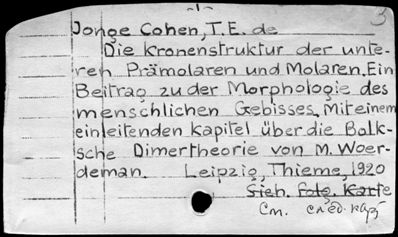 -1-
3
Jonge Cohen, T.E. de
Die kronenstruktur der unte-
ren Prämolaren und Molaren. Ein
Beitrag zu der Morphologie des
menschlichen Gebisses. Mit einem
einleitenden kapitel über die Bolk-
sche Dimertheorie von M. Woer-
deman. Leipzig, Thieme, 1920
Sieh. folg. Karte
См. след. карт